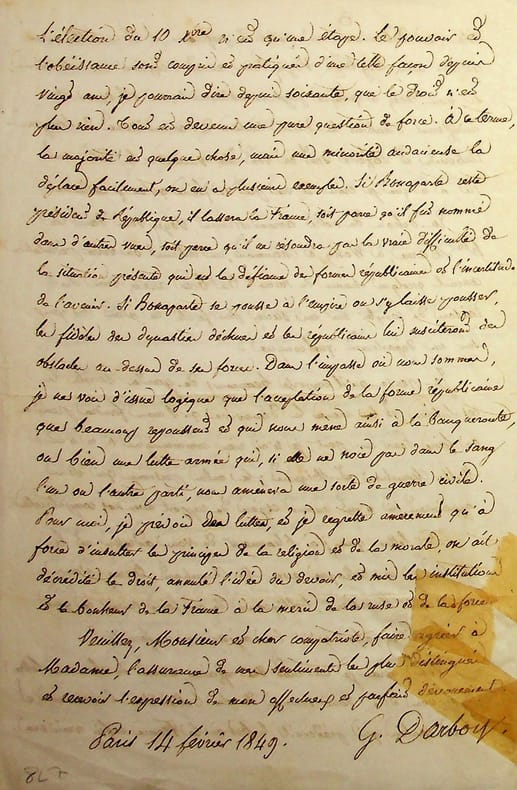 L'élection du 10 Xbre n'est qu'une étape. Le pouvoir et
l'obéissance sont compris et pratiqués d'une telle façon depuis
vingt ans, je pourrais dire depuis soixante, que le droit n'est
plus rien. Tout est devenu une pure question de force. À ce terme,
la majorité est quelque chose, mais une minorité audacieuse la
déplace facilement, on en a plusieurs exemples. Si Bonaparte reste
président de République, il lassera la France, soit parce qu'il fut nommé
dans d'autres vues, soit parce qu'il ne résoudra pas la vraie difficulté de
la situation présente qui est la défiance des formes républicaines et l'incertitude
de l'avenir. Si Bonaparte se pousse à l'empire ou s'y laisse pousser,
les fidèles des dynasties déchues et les républicains lui susciteront des
obstacles au-dessus de ses forces. Dans l'impasse où nous sommes,
je ne vois d'issue logique que l'acceptation de la forme républicaine
que beaucoup repoussent et qui nous mène ainsi à la banqueroute,
ou bien une lutte armée qui, si elle ne noie pas dans le sang
l'un ou l'autre parti, nous amènera une sorte de guerre civile.
Pour moi, je prévois des luttes, et je regrette amèrement qu'à
force d'insulter les principes de la religion et de la morale, on ait
décrédité le droit, annulé l'idée du devoir, et mis les institutions
et le bonheur de la France à la merci de la ruse et de la force.
Veuillez, Monsieur et cher compatriote, faire agréer à
Madame, l'assurance de mes sentiments les plus distingués
et recevoir l'expression de mon affectueux et parfait dévouement.
Paris 14 février 1849. G. Darboy.